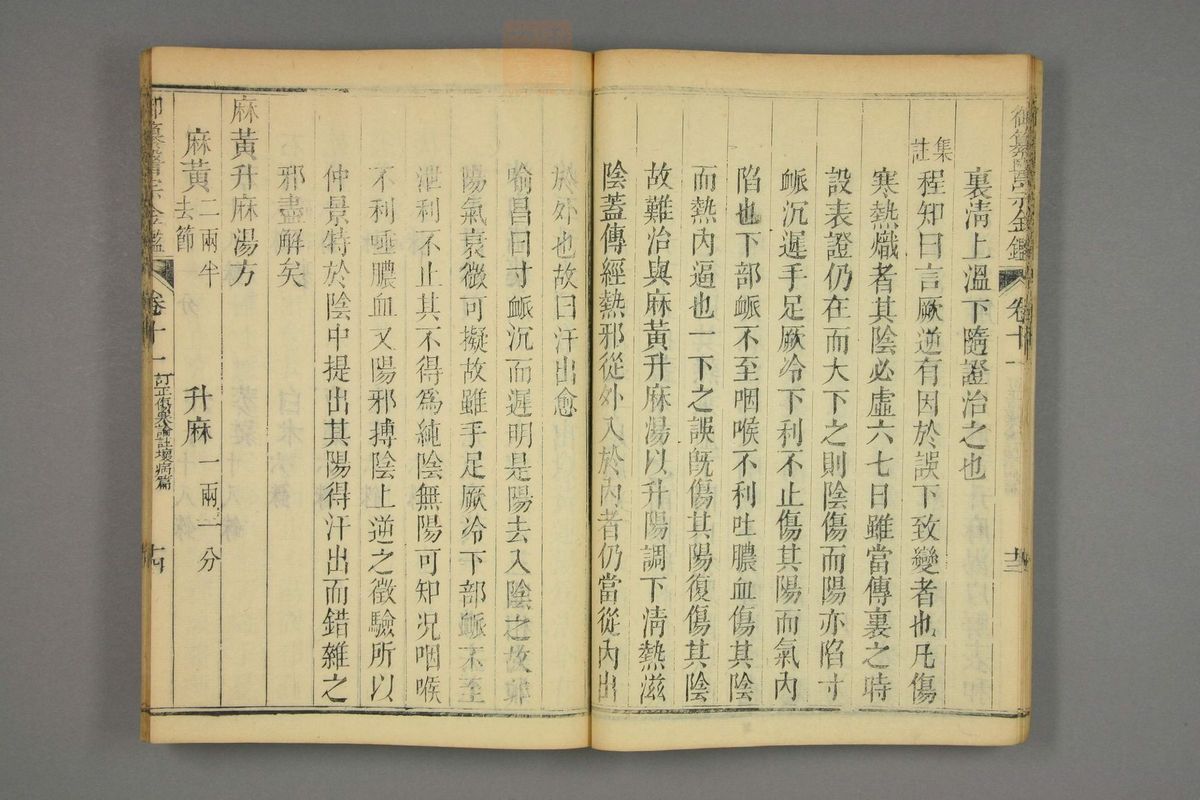 御纂醫宗金鑑
卷十一
裏淸上溫下隨證治之也
集註
程知曰言厥逆有因於誤下致變者也凡傷
寒熱熾者其陰必虛六七日雖當傳裏之時
設表證仍在而大下之則陰傷而陽亦陷寸
脈沉遲手足厥冷下利不止傷其陽而氣內
陷也下部脈不至咽喉不利吐膿血傷其陰
而熱內逼也一下之誤旣傷其陽復傷其陰
故難治與麻黃升麻湯以升陽調下淸熱滋
陰蓋傳經熱邪從外入於內者仍當從內出
於外也故曰汗出愈
喻昌曰寸脈沉而遲明是陽去入陰之故非
陽氣衰微可擬故雖手足厥冷下部脈不至
泄利不止其不得爲純陰無陽可知况咽喉
不利唾膿血又陽邪搏陰上逆之徵驗所以
仲景特於陰中提出其陽得汗出而錯雜之
邪盡解矣
麻黃升麻湯方
麻黃二兩半去節 升麻一兩一分
御纂醫宗金鑑
卷十一
訂正傷寒論註壞病篇
十四